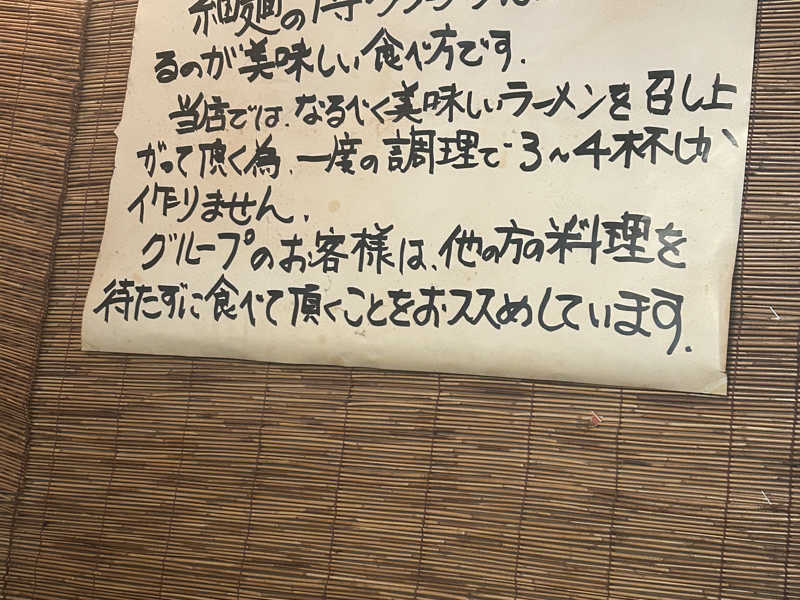 細麺の
るのが美味しい食べ方です.
当店では、なるべく美味しいラーメンを召し上
がって頂く為、一度の調理で3~4杯しか
作りません.
グループのお客様は、他の方の料理を
待たずに食べて頂くことをおススめしています.